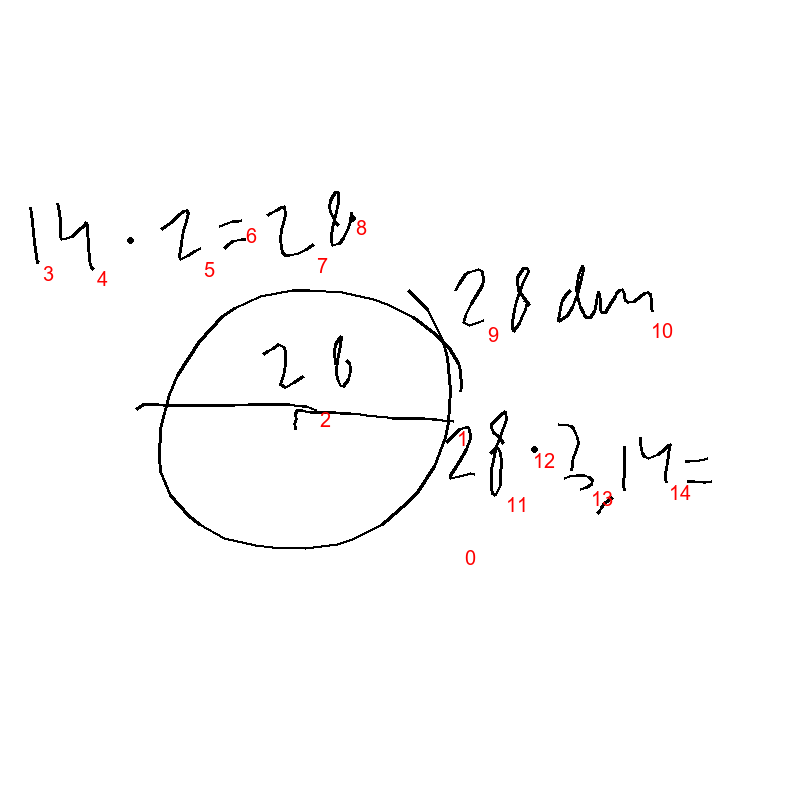 14 · 2 = 28
3 4 5 6 7 8
28 dm
9 10
28
2
1
28 · 3,14 =
11 12 13 14
0